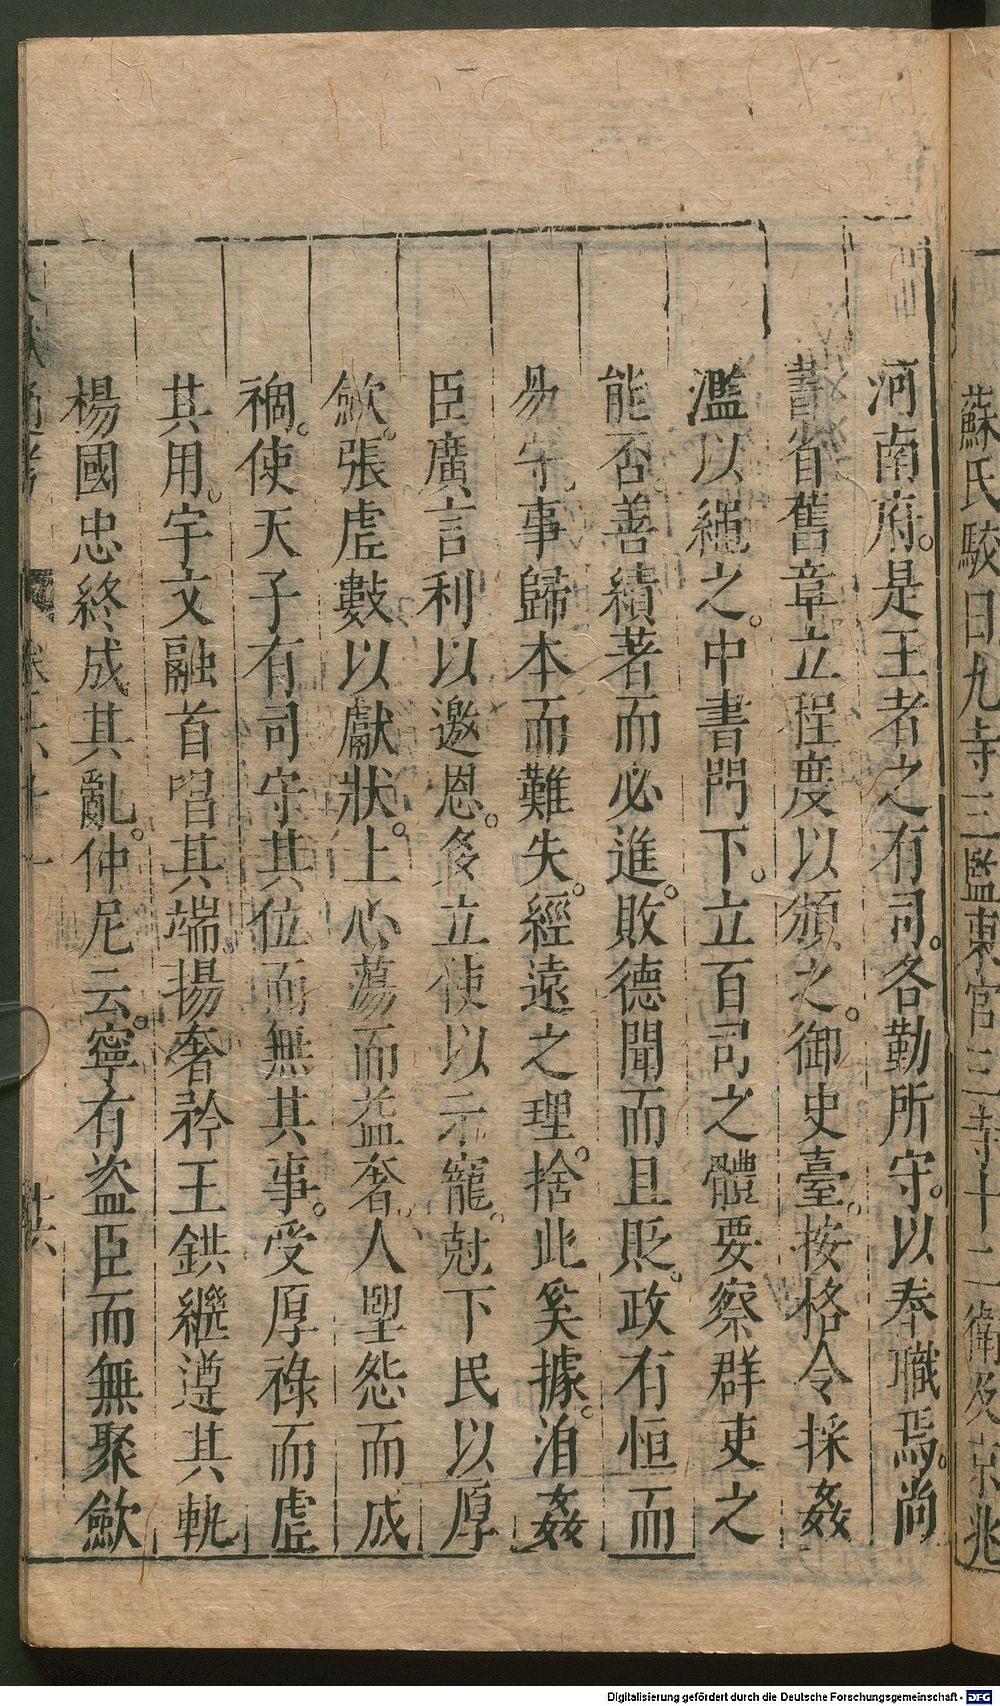 蘇氏駿曰九寺三監東宮三寺十二衛及京兆
河南府。是王者之有司。各勤所守。以奉職焉。尚
書省舊章立程度以頒之。御史臺。按格令採姦
濫以繩之。中書門下。立百司之體要察群吏之
能否。善績著而必進。敗德聞而且貶。政有恒而
易守。事歸本而難失。經遠之理。捨此奚據。洎姦
臣廣言利以邀恩。多立使以示寵。尅下民以厚
歛。張虛數以獻狀。上心蕩而益奢。人朢怨而成
禍。使天子有司守其位而無其事。受厚祿而虛
其用。宇文融首唱其端。揚奢矜王鉷繼遵其軌
楊國忠終成其亂。仲尼云。寧有盜臣而無聚歛
文獻通考 卷六十一 廿六
Digitalisierung gefördert durch die Deutsche Forschungsgemeinschaft - DFG